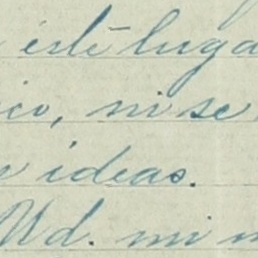 esté luga
ico, ni se
ideas.
Ud. mi m